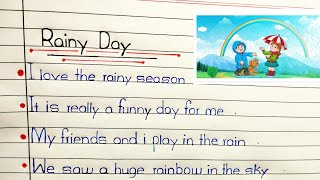 Rainy Day
I love the rainy season
It is really a funny day for me.
My friends and i play in the rain.
We saw a huge rainbow in the sky